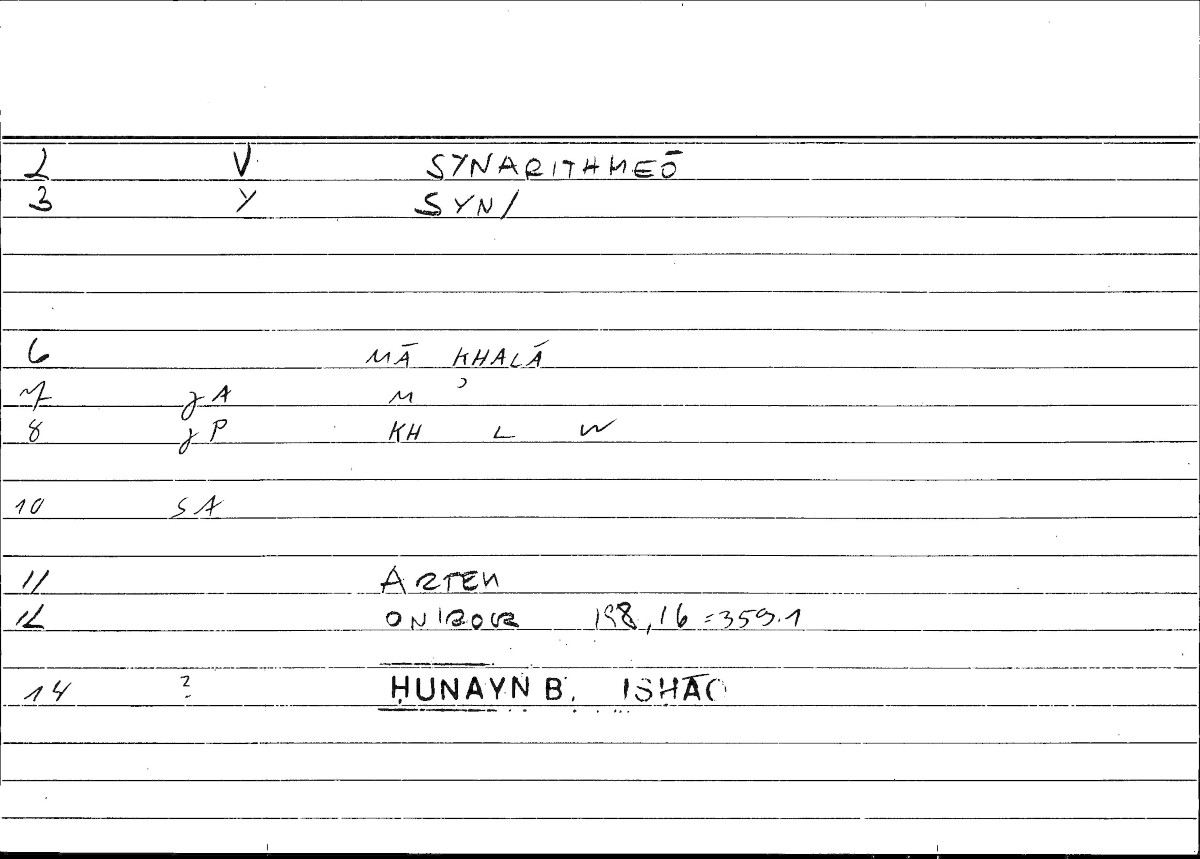 2 V SYNARITHMEŌ
3 Y SYN/
6 MĀ KHALĀ
7 jA M ʾ
8 jP KH L W
10 SA
11 ARTEM
12 ONIROCR 198,16=359.1
14 ? ḤUNAYN B. ISḤĀQ